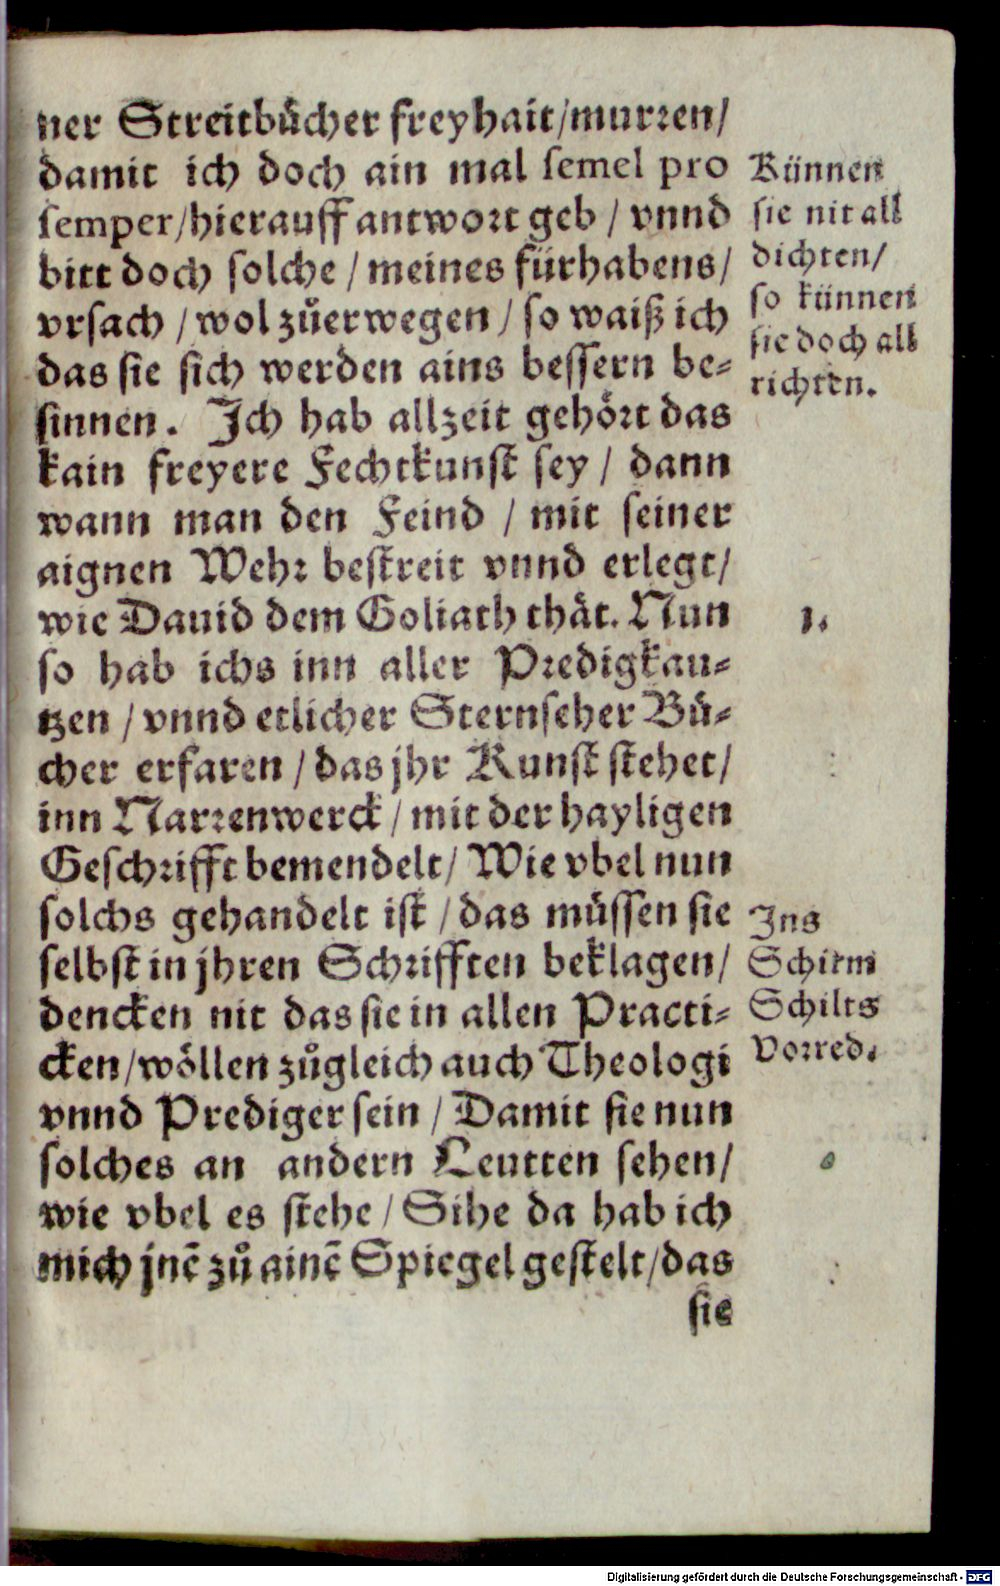 ner Streitbuͤcher freyhait/murꝛen/
damit ich doch ain mal semel pro
semper/hierauff antwoꝛt geb / vnnd
bitt doch solche / meines fürhabens/
vrsach / wol zuͦerwegen / so waiß ich
das sie sich werden ains bessern be⸗
sinnen. Jch hab allzeit gehoͤꝛt das
kain freyere Fechtkunst sey / dann
wann man den Feind / mit seiner
aignen Wehꝛ bestreit vnnd erlegt/
wie Dauid dem Goliath thaͤt. Nun
so hab ichs inn aller Pꝛedigkau⸗
tzen / vnnd etlicher Sternseher Buͤ⸗
cher erfaren / das jhr Kunst stehet/
inn Narꝛenwerck / mit der hayligen
Geschꝛifft bemendelt/ Wie vbel nun
solchs gehandelt ist / das muͤssen sie
selbst in jhren Schꝛifften beklagen/
dencken nit das sie in allen Practi⸗
cken/woͤllen zuͦgleich auch Theologi
vnnd Prediger sein / Damit sie nun
solches an andern Leutten sehen/
wie vbel es stehe / Sihe da hab ich
mich jnē zuͦ ainē Spiegel gestelt/das
sie
Künnen
sie nit all
dichten/
so künnen
sie doch all
richten.
1.
Jns
Schirm
Schilts
Voꝛred.
Digitalisierung gefördert durch die Deutsche Forschungsgemeinschaft - DFG